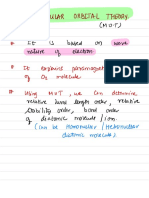 MOLECULAR ORBITAL THEORY
(MOT)
It is based on wave
nature of electron.
It explains paramagnetic
of O2 molecule.
Using MOT, we can determine
relative bond length order, relative
stability order, bond order
of diatomic molecule/ion.
(can be Homonuclear/Heteronuclear
diatomic molecule)